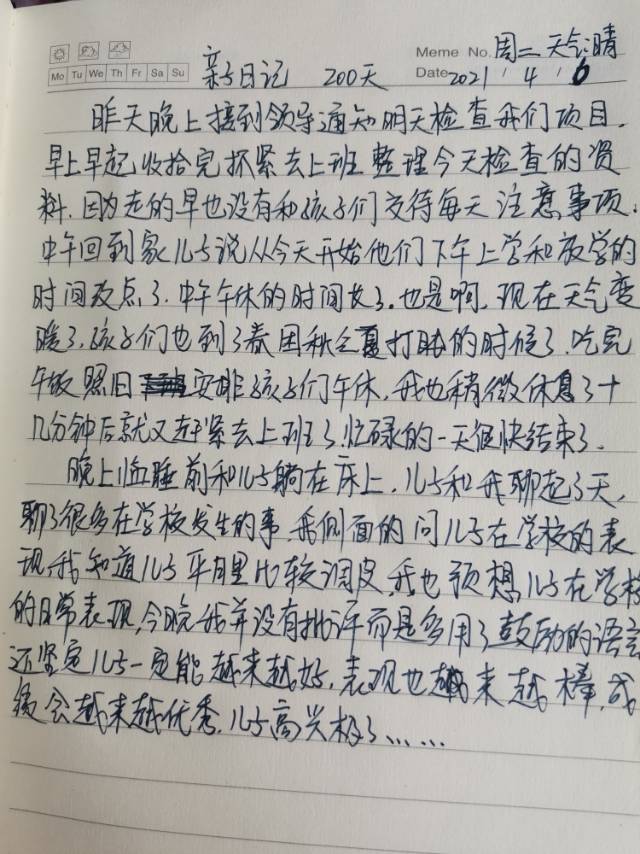 Meme No. 周二 天气:晴
Mo Tu We Th Fr Sa Su 亲子日记 200天 Date 2021 / 4 / 6
昨天晚上接到领导通知明天检查我们项目,
早上早起收拾完抓紧去上班整理今天检查的资
料.因为走的早也没有和孩子们交待每天注意事项.
中午回到家儿子说从今天开始他们下午上学和放学的
时间改点了.中午午休的时间长了.也是啊,现在天气变
暖了,孩子们也到了春困秋乏夏打盹的时候了.吃完
午饭照旧安排孩子们午休,我也稍微休息了十
几分钟后就又赶紧去上班了.忙碌的一天很快结束了.
晚上临睡前和儿子躺在床上,儿子和我聊起了天,
聊了很多在学校发生的事.我侧面的问儿子在学校的表
现,我知道儿子平日里比较调皮,我也预想儿子在学校
的日常表现,今晚我并没有批评而是多用了鼓励的语言
还坚定儿子一定能越来越好,表现也越来越棒,成
绩会越来越优秀.儿子高兴极了......